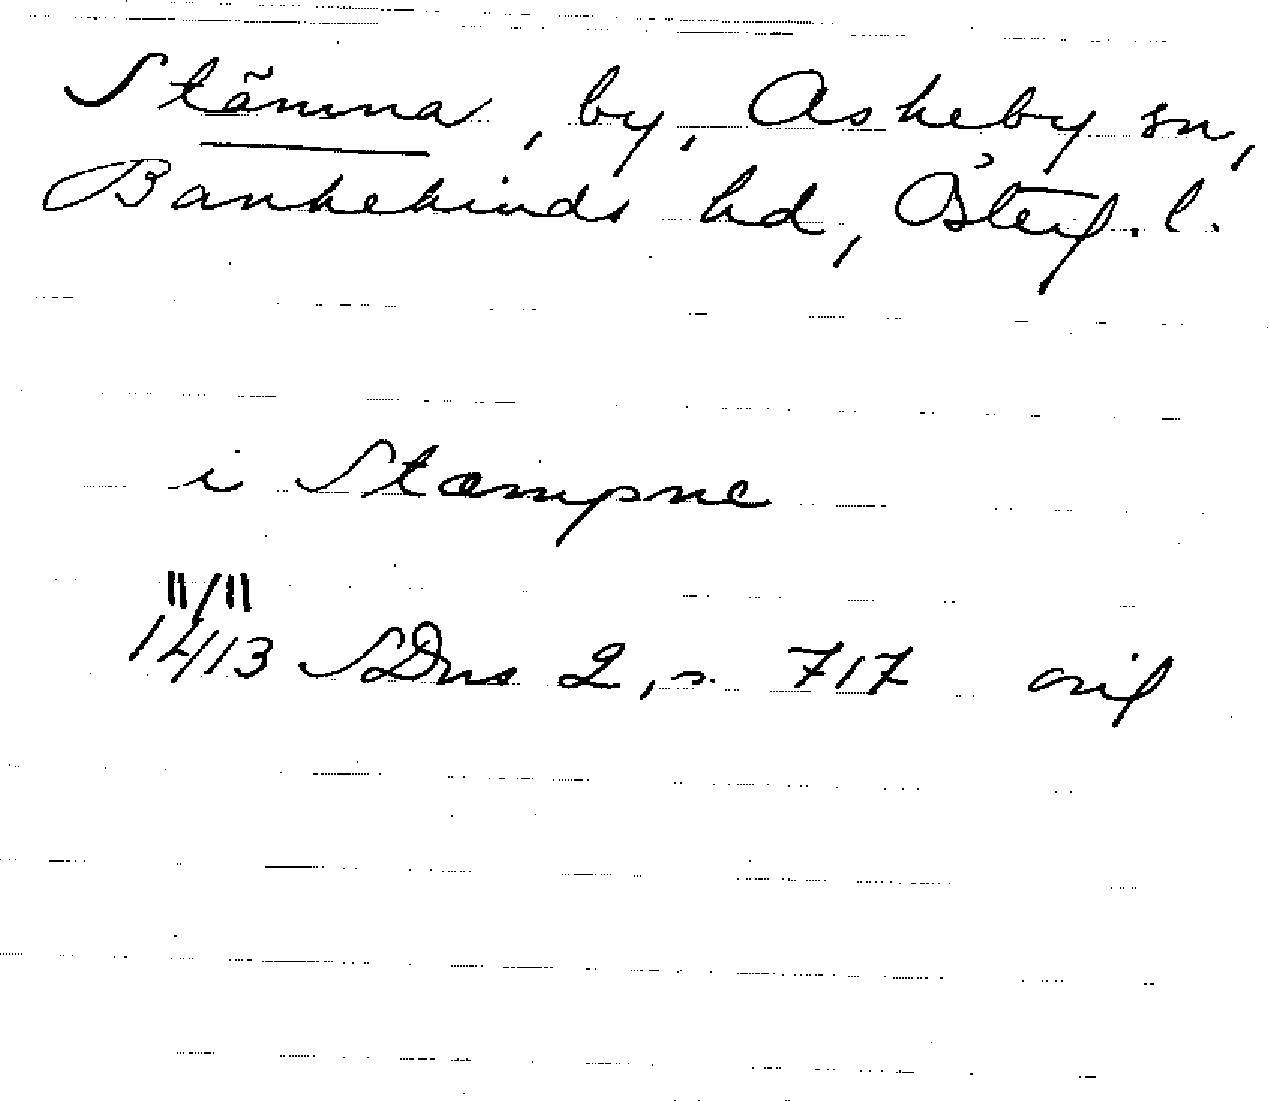 Stämna, by, Askeby sn,
Bankekinds hd, Österg. l.
i Stæmpne
11/11
1413 SDns 2, s. 717 orig